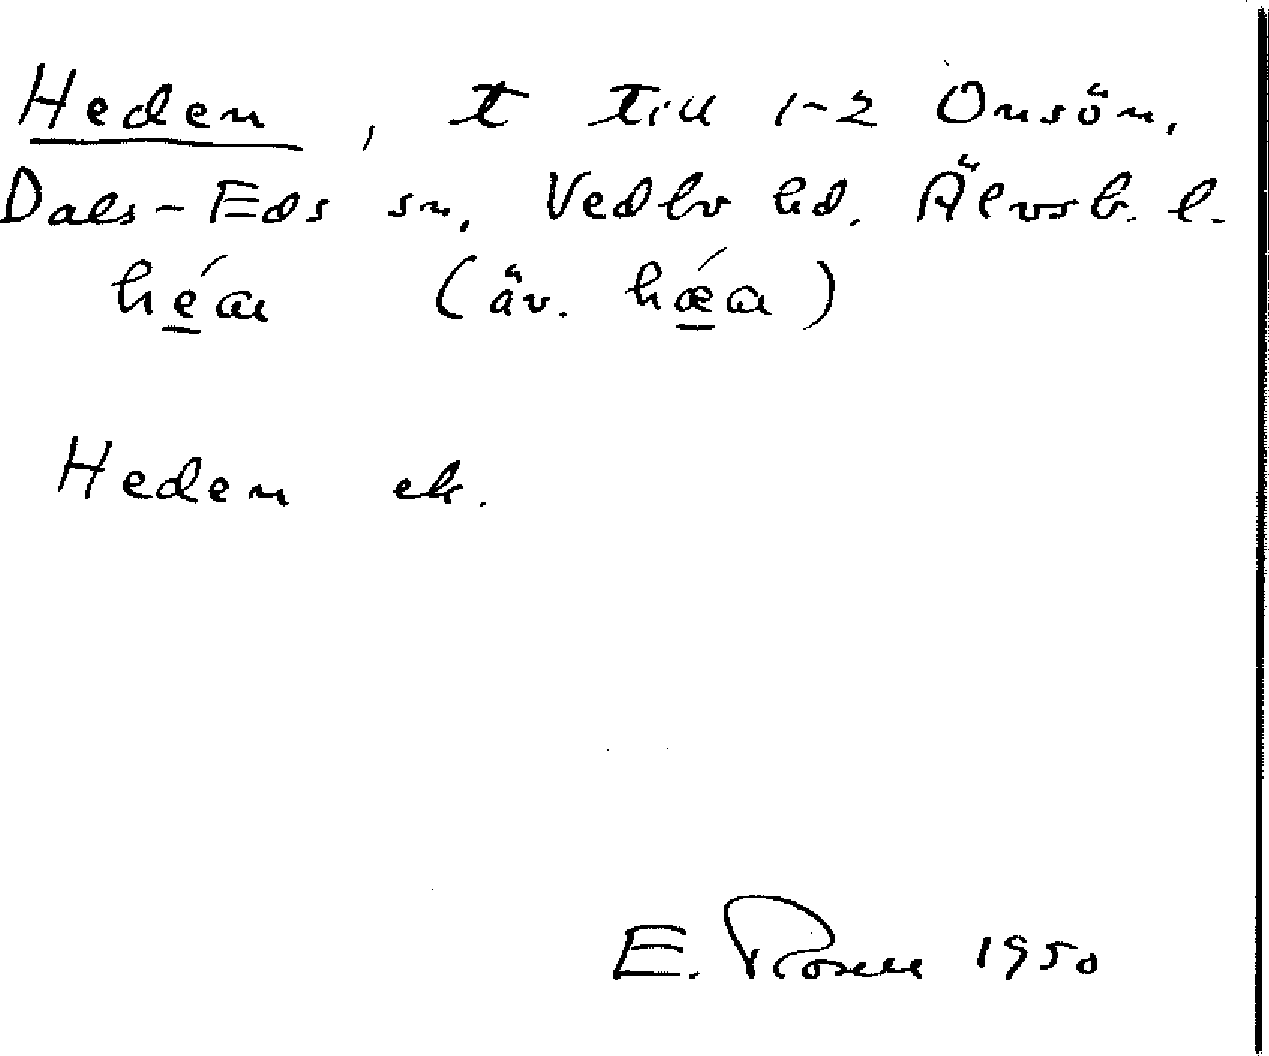 Heden, t till 1-2 Onsön,
Dals-Eds sn, Vedbo hd. Älvsb. l.
hé̲a (äv. hǽ̲a)
Heden ek.
E. Rosell 1950